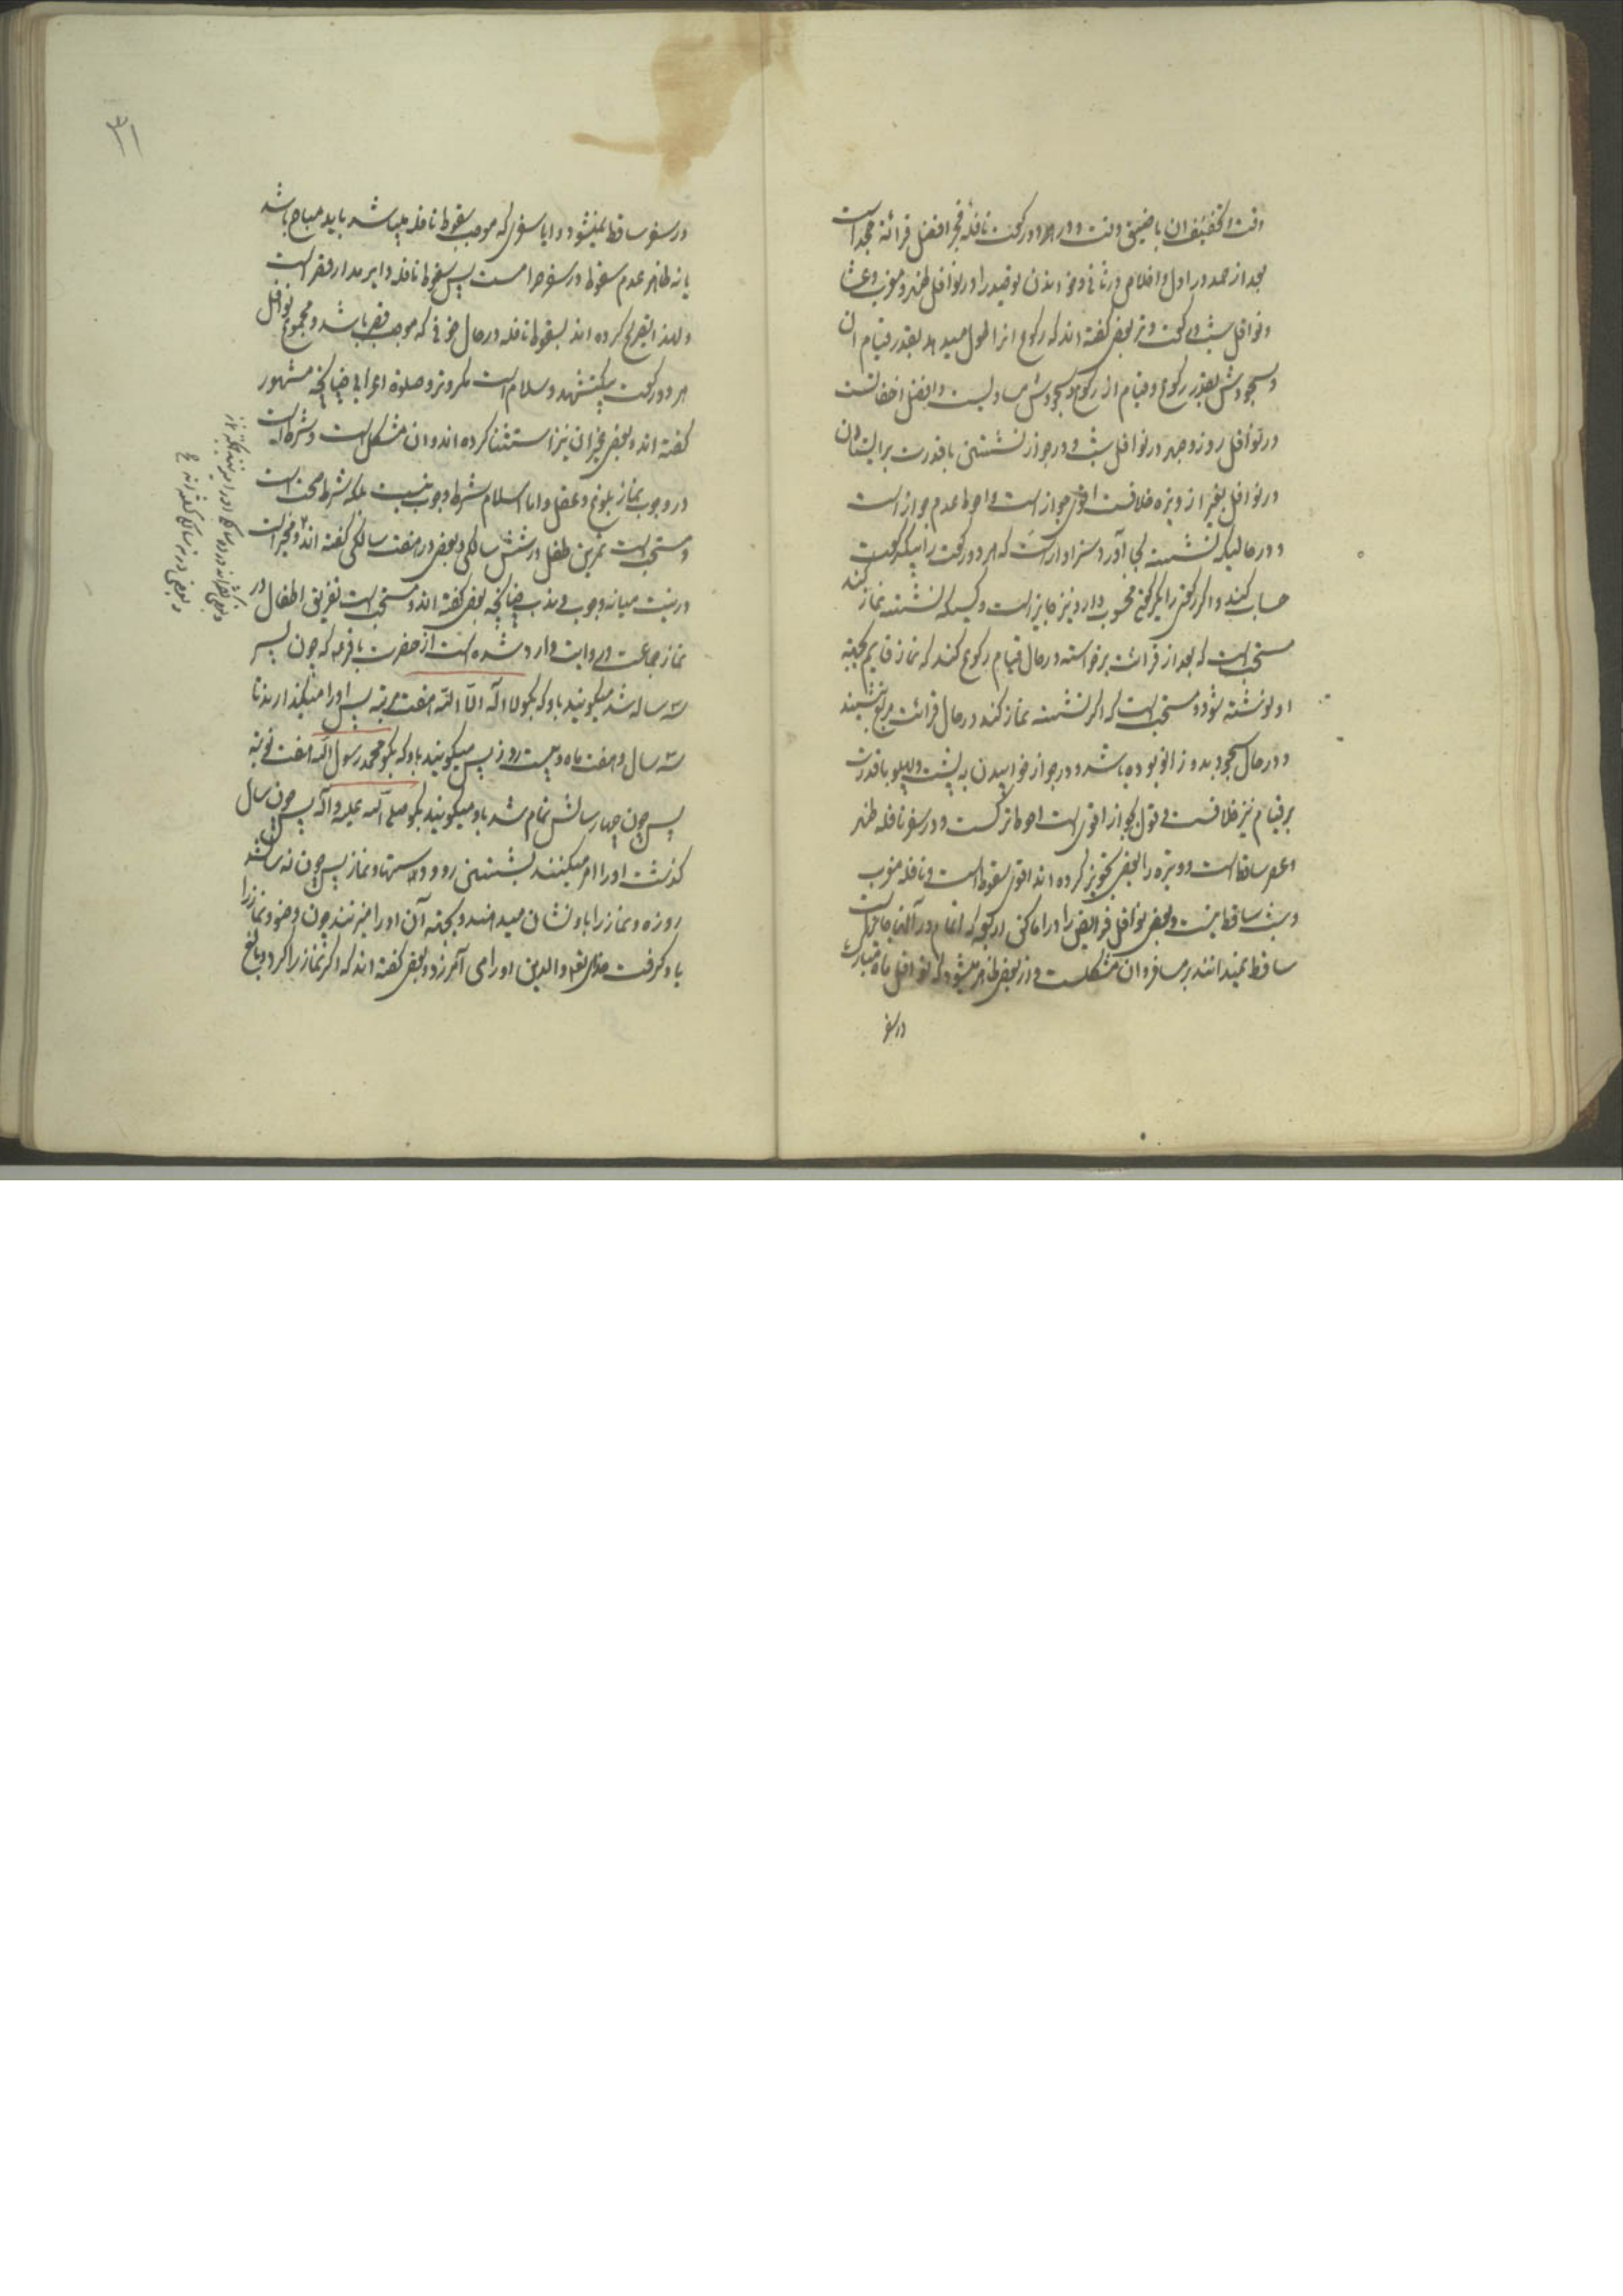 وقت و تخفیف ان با ضیق وقت و در هر دو رکعت نافله فجر افضل قرائة مجد است
بعد از حمد در اول و اخلاص در ثانی و خواندن توحید را در نوافل ظهر و مغرب و عشا
و نوافل شب و رکعت وتر بعض گفته اند که رکوع انرا طول میدهد بقدر قیام ان
و سجودش بقدر رکوع و قیام از رکوع و سجودش مساویست و افضل اخفاتست
در نوافل روز و جهر در نوافل شب و در جواز نشستن با قدرت بر ایستادن
در نوافل بغیر از وتیره خلافست اقوی جواز است و احوط عدم جواز است
و در حالیکه نشسته بجا آورد سزاوار است که هر دو رکعت را بیکرکعت
حساب کند و اگر رکعتی را بیکرکعتی محسوب دارد نیز جایز است و کسیکه نشسته نماز کند
مستحب است که بعد از قرائت برخواسته در حال قیام رکوع کند که نماز قایم بجهة
او نوشته شود و مستحب است که اگر نشسته نماز کند در حال قرائت مربع نشیند
و در حال سجود بدو زانو بوده باشد و در جواز خوابیدن به پشت و پهلو با قدرت
بر قیام نیز خلافست و قول بجواز اقوی است احوط ترکست و در سفر نافله ظهر
و عصر ساقط است و وتیره را بعض تجویز کرده اند اقوی سقوط است و نافله مغرب
و شب ساقط نیست و بعض نوافل فرایض را در اماکنی اربعه که اتمام در آنها جایز است
ساقط نمیدانند بر مسافر و ان مشکلست و از بعض ظاهر میشود که نوافل ماه مبارک
در سفر
۳۱
در سفر ساقط نمیشود و ایا سفری که موجب سقوط نافله میباشد باید مباح باشد
یا نه ظاهر عدم سقوط در سفر حرامست پس سقوط نافله دایر مدار قصر است
و لهذا تصریح کرده اند بسقوط نافله در حال خوفی که موجب قصر باشد و مجموع نوافل
هر دو رکعت بیکتشهد و سلام است مگر وتر و صلوة اعرابی چنانچه مشهور
گفته اند و بعض غیر ان نیز استثنا کرده اند و ان مشکل است و شرط است
در وجوب نماز بلوغ و عقل و اما اسلام شرط وجوب نیست بلکه شرط صحت است
و مستحب است تمرین طفل در شش سالگی و بعض در هفت سالگی گفته اند و مخیر است
در نیت میانه وجوب و ندب چنانچه بعض گفته اند و مستحب است تفریق اطفال در
نماز جماعت و روایت وارد شده است از حضرت باقر ع که چون پسر
سه ساله شد میگویند باو که بگو لا اله الا الله هفت مرتبه پس او را میگذارند تا
سه سال و هفت ماه و بیست روز پس میگویند باو که بگو محمد رسول الله هفت نوبته
پس چون چهار سالش تمام شد باو میگویند بگو صلی الله علیه و آله پس چون سال
گذشت او را امر میکنند بشستن رو و دستها و نماز پس چون نه سالش
روزه و نماز را باو نشان میدهند و بجهته آن او را میزنند چون وضو و نماز را
یاد گرفت خدای تعالی والدین او را می آمرزد و بعض گفته اند که اگر نماز را کرد و بالغ